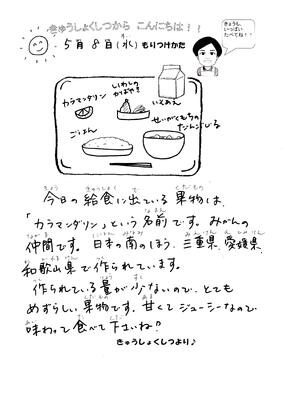 きゅうしょくしつから こんにちは！！
きょうも、
いっぱい
たべてね！！
5月8日(水) もりつけかた
いわしの
かばやき
カラマンダリン
ごはん
たんごじる
今日の給食に出ている果物は、
「カラマンダリン」という名前です。みかんの
仲間です。日本の南のほう、三重県、愛媛県、
和歌山県で作られています。
作られている量が少ないので、とても
めずらしい果物です。甘くてジューシーなので
味わって食べて下さいね？
きゅうしょくしつより♪